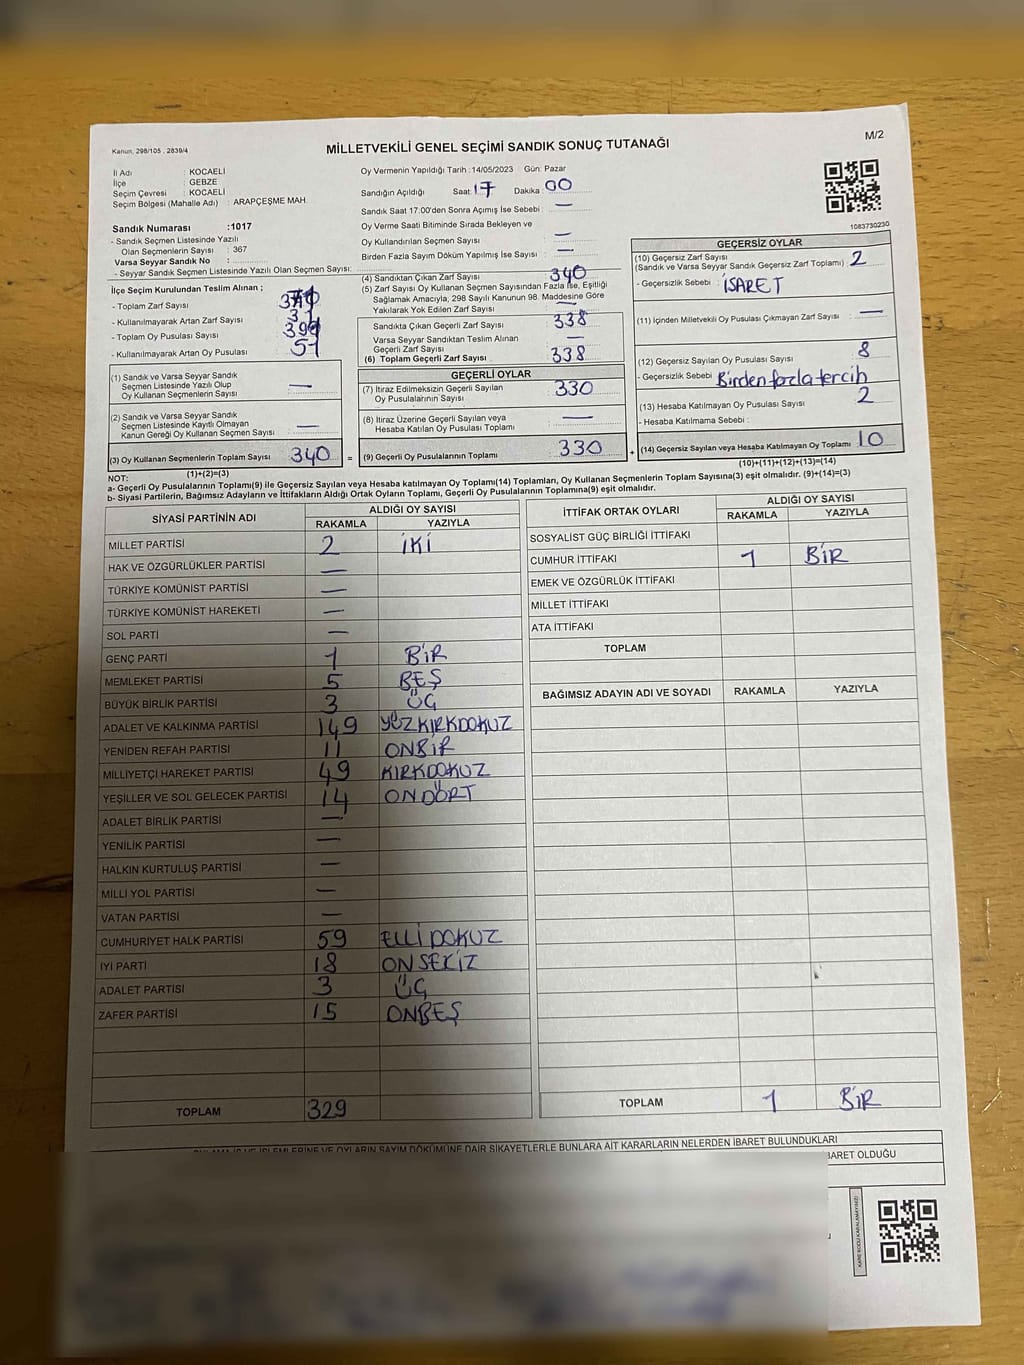 Kanun, 298/105 , 2839/4
MİLLETVEKİLİ GENEL SEÇİMİ SANDIK SONUÇ TUTANAĞI
M/2
İl Adı : KOCAELİ
İlçe : GEBZE
Seçim Çevresi : KOCAELİ
Seçim Bölgesi (Mahalle Adı) : ARAPÇEŞME MAH.
Sandık Numarası :1017
- Sandık Seçmen Listesinde Yazılı
Olan Seçmenlerin Sayısı : 367
Varsa Seyyar Sandık No :
- Seyyar Sandık Seçmen Listesinde Yazılı Olan Seçmen Sayısı:
Oy Vermenin Yapıldığı Tarih :14/05/2023 Gün: Pazar
Sandığın Açıldığı Saat: 17 Dakika: 00
Sandık Saat 17:00'den Sonra Açımış İse Sebebi : —
Oy Verme Saati Bitiminde Sırada Bekleyen ve
Oy Kullandırılan Seçmen Sayısı —
Birden Fazla Sayım Döküm Yapılmış İse Sayısı : —
1083730230
İlçe Seçim Kurulundan Teslim Alınan :
- Toplam Zarf Sayısı
- Kullanılmayarak Artan Zarf Sayısı
- Toplam Oy Pusulası Sayısı
- Kullanılmayarak Artan Oy Pusulası
(1) Sandık ve Varsa Seyyar Sandık
Seçmen Listesinde Yazılı Olup
Oy Kullanan Seçmenlerin Sayısı —
(2) Sandık ve Varsa Seyyar Sandık
Seçmen Listesinde Kayıtlı Olmayan
Kanun Gereği Oy Kullanan Seçmen Sayısı —
(3) Oy Kullanan Seçmenlerin Toplam Sayısı 340 =
(1)+(2)=(3)
(4) Sandıktan Çıkan Zarf Sayısı 340
(5) Zarf Sayısı Oy Kullanan Seçmen Sayısından Fazla İse, Eşitliği
Sağlamak Amacıyla, 298 Sayılı Kanunun 98. Maddesine Göre
Yakılarak Yok Edilen Zarf Sayısı : —
Sandıkta Çıkan Geçerli Zarf Sayısı : 338
Varsa Seyyar Sandıktan Teslim Alınan
Geçerli Zarf Sayısı : —
(6) Toplam Geçerli Zarf Sayısı : 338
GEÇERLİ OYLAR
(7) İtiraz Edilmeksizin Geçerli Sayılan
Oy Pusulalarının Sayısı : 330
(8) İtiraz Üzerine Geçerli Sayılan veya
Hesaba Katılan Oy Pusulası Toplamı : —
(9) Geçerli Oy Pusulalarının Toplamı : 330 +
GEÇERSİZ OYLAR
(10) Geçersiz Zarf Sayısı
(Sandık ve Varsa Seyyar Sandık Geçersiz Zarf Toplamı) 2
- Geçersizlik Sebebi : İSARET
(11) İçinden Milletvekili Oy Pusulası Çıkmayan Zarf Sayısı : —
(12) Geçersiz Sayılan Oy Pusulası Sayısı 8
- Geçersizlik Sebebi Birden fazla tercih
(13) Hesaba Katılmayan Oy Pusulası Sayısı 2
- Hesaba Katılmama Sebebi :
(14) Geçersiz Sayılan veya Hesaba Katılmayan Oy Toplamı 10
(10)+(11)+(12)+(13)=(14)
NOT:
a- Geçerli Oy Pusulalarının Toplamı(9) ile Geçersiz Sayılan veya Hesaba Katılmayan Oy Toplamı(14) Toplamları, Oy Kullanan Seçmenlerin Toplam Sayısına(3) eşit olmalıdır. (9)+(14)=(3)
b- Siyasi Partilerin, Bağımsız Adayların ve İttifakların Aldığı Ortak Oyların Toplamı, Geçerli Oy Pusulalarının Toplamına(9) eşit olmalıdır.
SİYASİ PARTİNİN ADI ALDIĞI OY SAYISI
RAKAMLA YAZIYLA
MİLLET PARTİSİ 2 İKİ
HAK VE ÖZGÜRLÜKLER PARTİSİ —
TÜRKİYE KOMÜNİST PARTİSİ —
TÜRKİYE KOMÜNİST HAREKETİ —
SOL PARTİ —
GENÇ PARTİ 1 BİR
MEMLEKET PARTİSİ 5 BEŞ
BÜYÜK BİRLİK PARTİSİ 3 ÜÇ
ADALET VE KALKINMA PARTİSİ 149 YÜZKIRKDOKUZ
YENİDEN REFAH PARTİSİ 11 ONBİR
MİLLİYETÇİ HAREKET PARTİSİ 49 KIRKDOKUZ
YEŞİLLER VE SOL GELECEK PARTİSİ 14 ONDÖRT
ADALET BİRLİK PARTİSİ —
YENİLİK PARTİSİ —
HALKIN KURTULUŞ PARTİSİ —
MİLLİ YOL PARTİSİ —
VATAN PARTİSİ —
CUMHURİYET HALK PARTİSİ 59 ELLİDOKUZ
İYİ PARTİ 18 ONSEKİZ
ADALET PARTİSİ 3 ÜÇ
ZAFER PARTİSİ 15 ONBEŞ
TOPLAM 329
İTTİFAK ORTAK OYLARI ALDIĞI OY SAYISI
RAKAMLA YAZIYLA
SOSYALİST GÜÇ BİRLİĞİ İTTİFAKI
CUMHUR İTTİFAKI 1 BİR
EMEK VE ÖZGÜRLÜK İTTİFAKI
MİLLET İTTİFAKI
ATA İTTİFAKI
TOPLAM
BAĞIMSIZ ADAYIN ADI VE SOYADI RAKAMLA YAZIYLA
TOPLAM 1 BİR
İŞLEMLERİNE VE OYLARIN SAYIM DÖKÜMÜNE DAİR ŞİKAYETLERLE BUNLARA AİT KARARLARIN NELERDEN İBARET BULUNDUKLARI
BARET OLDUĞU